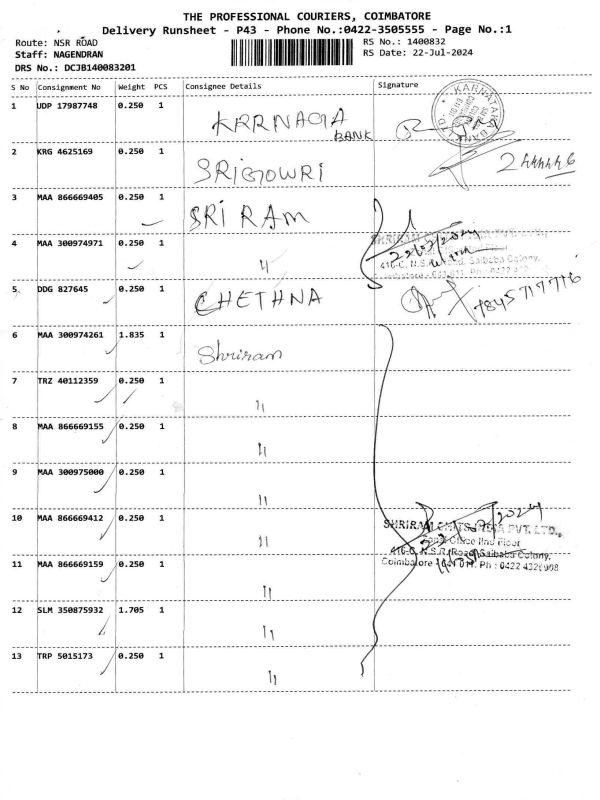 THE PROFESSIONAL COURIERS, COIMBATORE
Delivery Runsheet - P43 - Phone No.:0422-3505555 - Page No.:1
Route: NSR ROAD
Staff: NAGENDRAN
DRS No.: DCJB140083201
RS No.: 1400832
RS Date: 22-Jul-2024
S No Consignment No Weight PCS Consignee Details Signature
1 UDP 17987748 0.250 1 KRRNAGA BANK
KARNATAKA BANK LTD.
2 KRG 4625169 0.250 1 SRIGOWRI
3 MAA 866669405 0.250 1 SRI RAM
4 MAA 300974971 0.250 1 "
22/07/2024
416-C, N.S.R. Road, Saibaba Colony,
5 DDG 827645 0.250 1 CHETHNA
6 MAA 300974261 1.835 1 Shriram
7 TRZ 40112359 0.250 1 "
8 MAA 866669155 0.250 1 "
9 MAA 300975000 0.250 1 "
10 MAA 866669412 0.250 1 "
SHRIRAM PVT. LTD.,
Zonal Office IInd Floor
416-C, N.S.R. Road, Saibaba Colony,
Coimbatore - 641 011. Ph : 0422 4320908
11 MAA 866669159 0.250 1 "
12 SLM 350875932 1.705 1 "
13 TRP 5015173 0.250 1 "